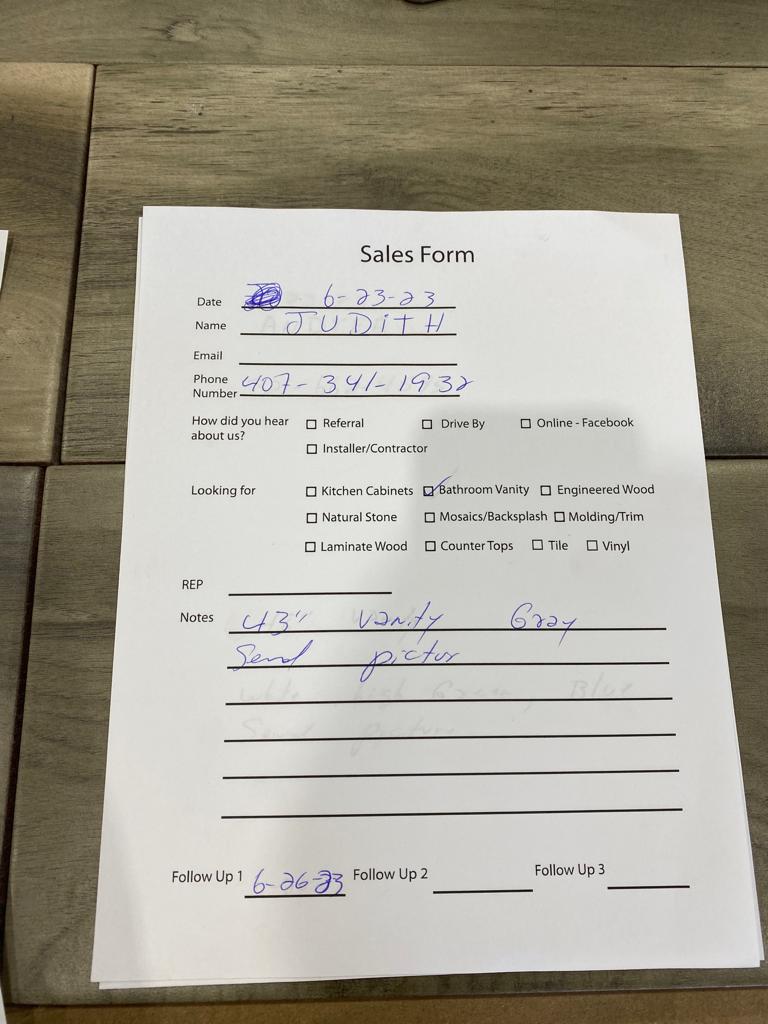 Sales Form
Date 6-23-23
Name JUDiTH
Email
Phone Number 407-341-1932
How did you hear about us? ☐ Referral ☐ Drive By ☐ Online - Facebook
☐ Installer/Contractor
Looking for ☐ Kitchen Cabinets ☑ Bathroom Vanity ☐ Engineered Wood
☐ Natural Stone ☐ Mosaics/Backsplash ☐ Molding/Trim
☐ Laminate Wood ☐ Counter Tops ☐ Tile ☐ Vinyl
REP
Notes 43" vanity Gray
Send pictur
Follow Up 1 6-26-23 Follow Up 2 Follow Up 3